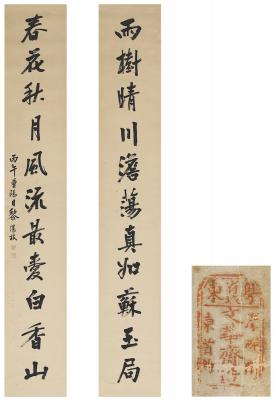 雨樹晴川澹蕩真如蘇玉局
春花秋月風流最愛白香山
丙午重陽日黎湛枝
文華齋